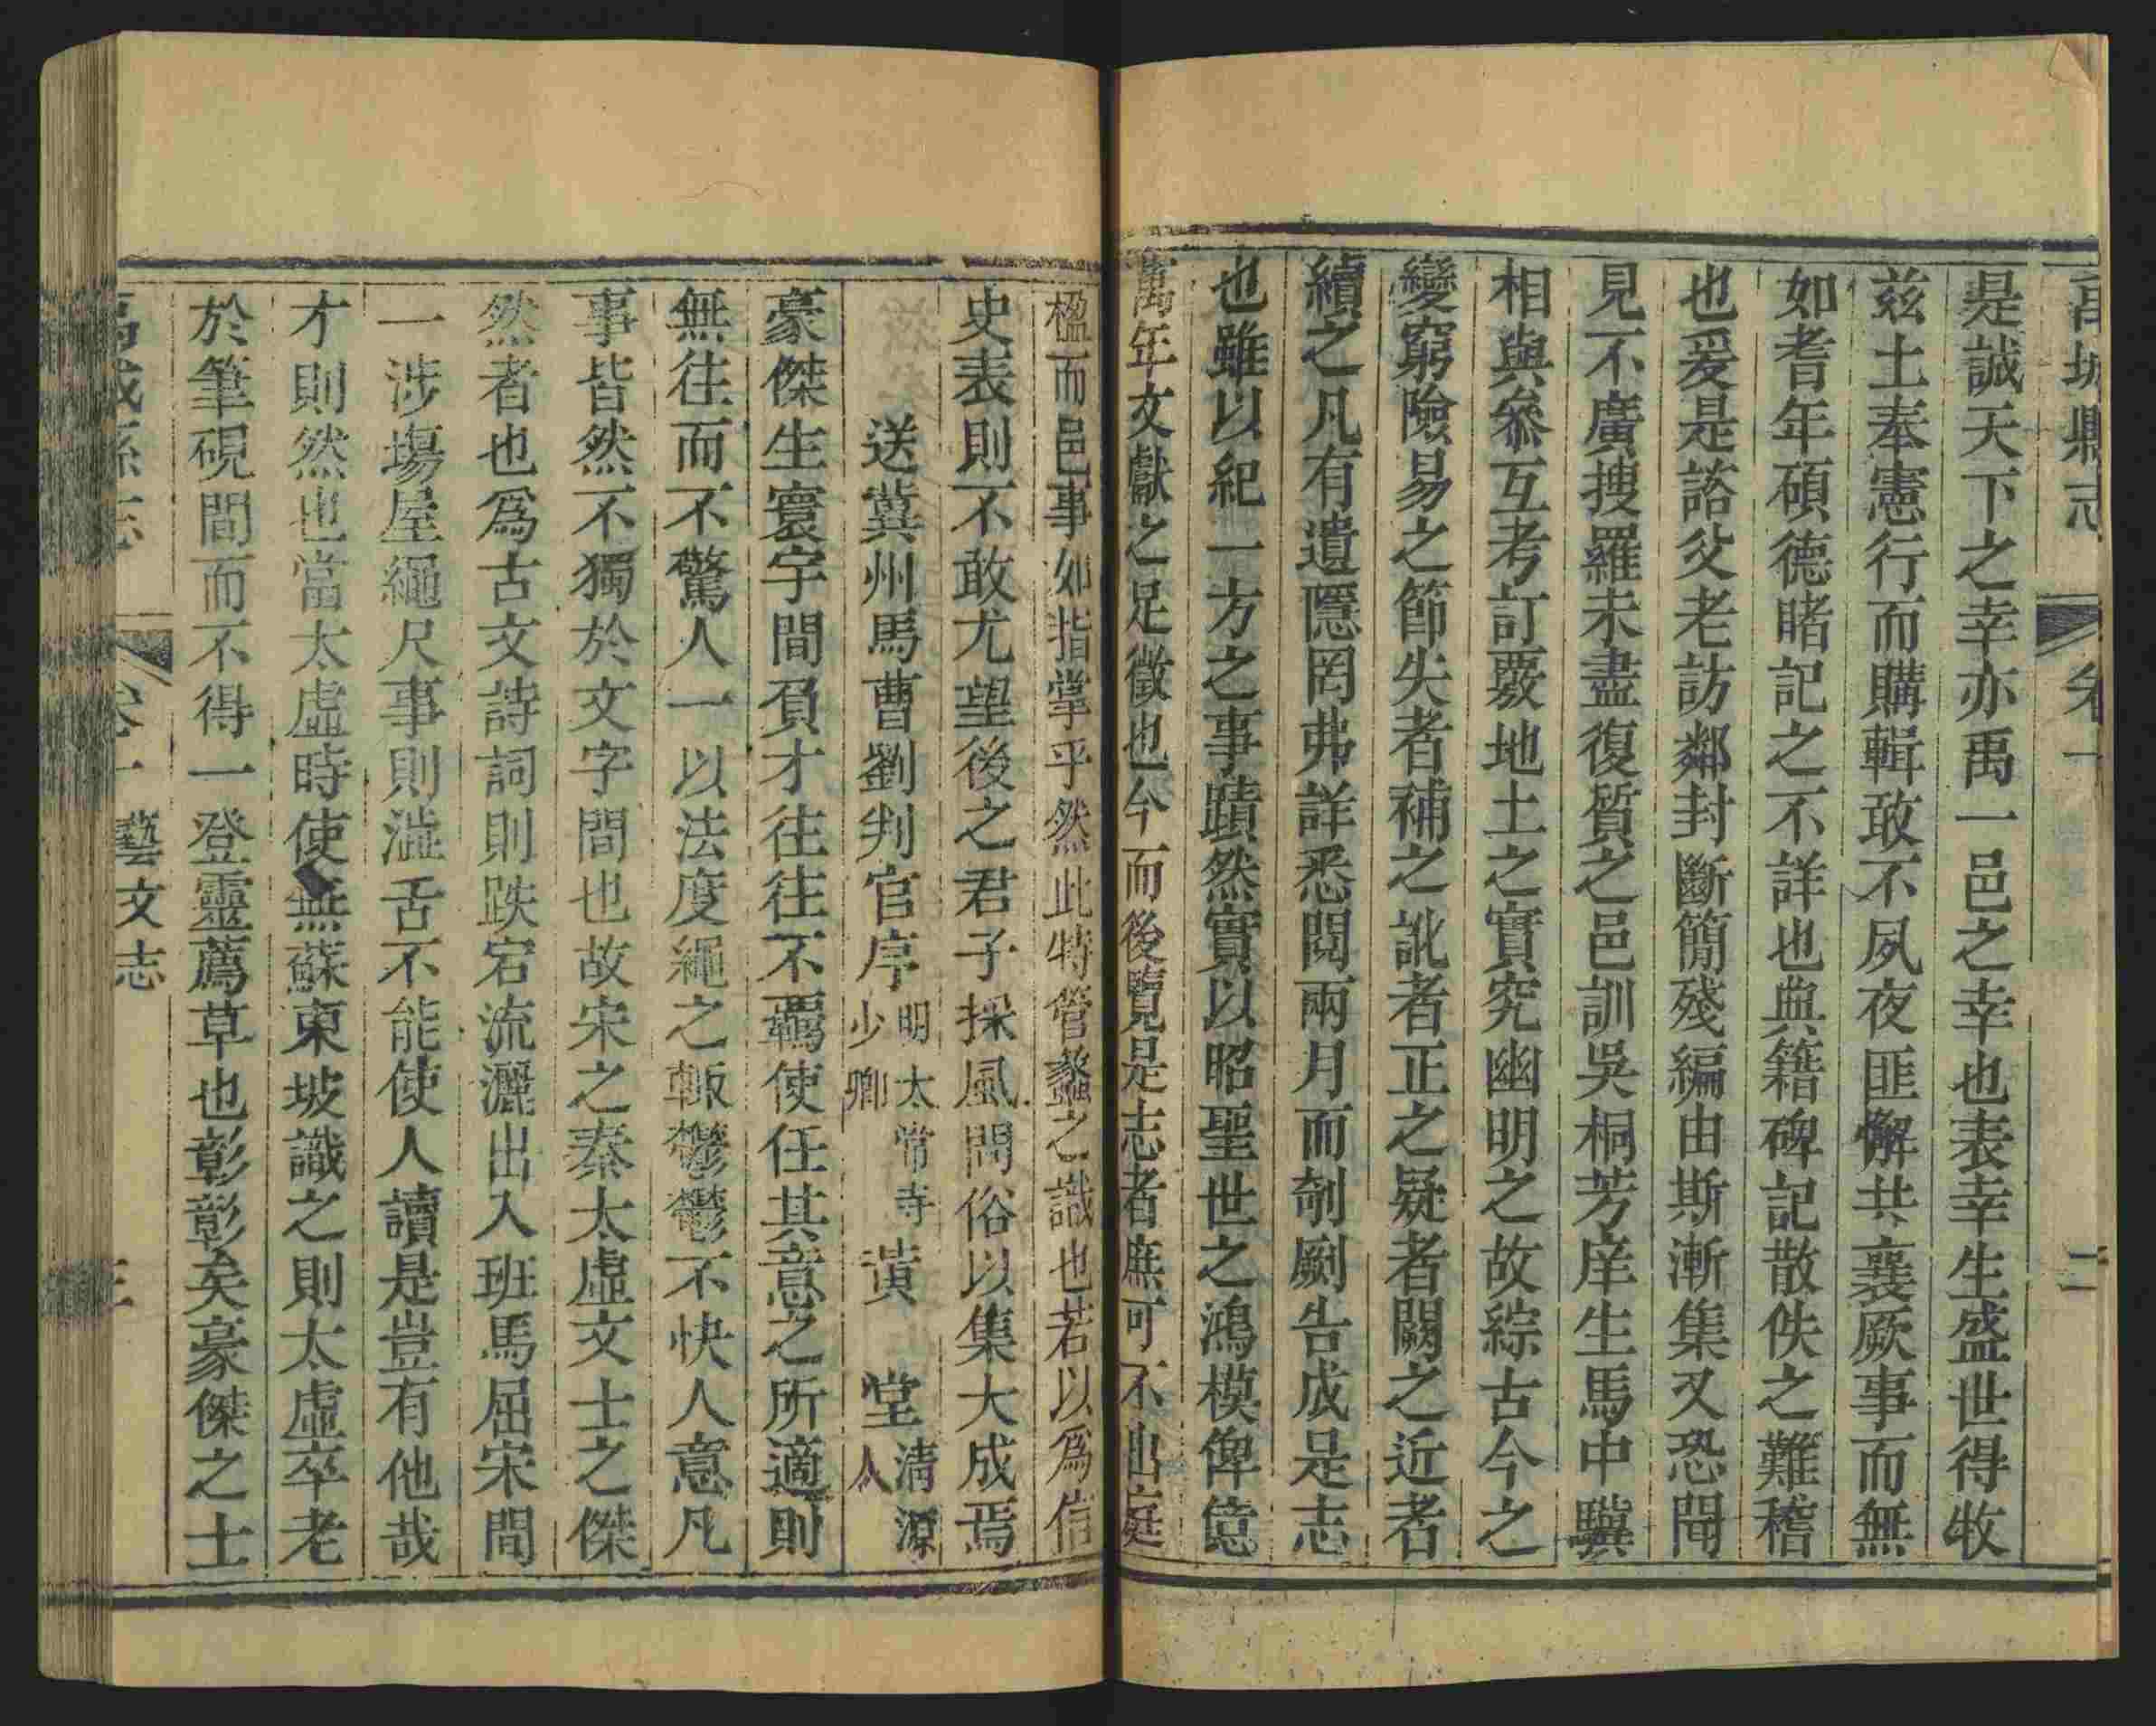 高城縣志 卷一 二
是誠天下之幸亦禹一邑之幸也表幸生盛世得牧
兹土奉憲行而購輯敢不夙夜匪懈共襄厥事而無
如耆年碩德睹記之不詳也典籍碑記散佚之難稽
也爰是諮父老訪鄰封斷簡殘編由斯漸集又恐聞
見不廣搜羅未盡復質之邑訓吳桐芳庠生馬中驥
相與叅互考訂覈地土之實究幽明之故綜古今之
變窮險易之節失者補之訛者正之疑者闕之近者
續之凡有遺隱罔弗詳悉閱兩月而剞劂告成是志
也雖以紀一方之事蹟然實以昭聖世之鴻模俾億
萬年文獻之足徵也今而後覽是志者庶可不出庭
楹而邑事如指掌乎然此特管蠡之識也若以為信
史表則不敢尤望後之君子採風問俗以集大成焉
送冀州馬曹劉判官序 明太常寺少卿 黄 堂 清源人
豪傑生寰宇間負才往往不覊使任其意之所適則
無往而不驚人一以法度繩之輙鬱鬱不快人意凡
事皆然不獨於文字間也故宋之秦太虛文士之傑
然者也爲古文詩詞則跌宕流灑出入班馬屈宋間
一涉塲屋繩尺事則澁舌不能使人讀是豈有他哉
才則然也當太虛時使無蘇東坡識之則太虛卒老
於筆硯間而不得一登靈薦草也彰彰矣豪傑之士
卷一 藝文志 三